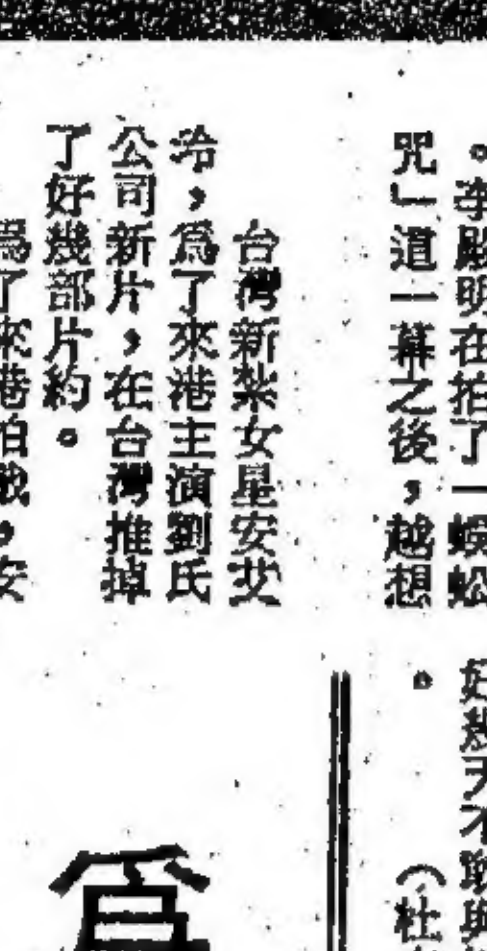 。李殿明在拍了「蜈蚣
咒」這一幕之後，越想
好幾天不敢與
。　（杜
台灣新紮女星安艾
泠，為了來港主演劉氏
公司新片，在台灣推掉
了好幾部片約。
為了來港拍戲，安
為